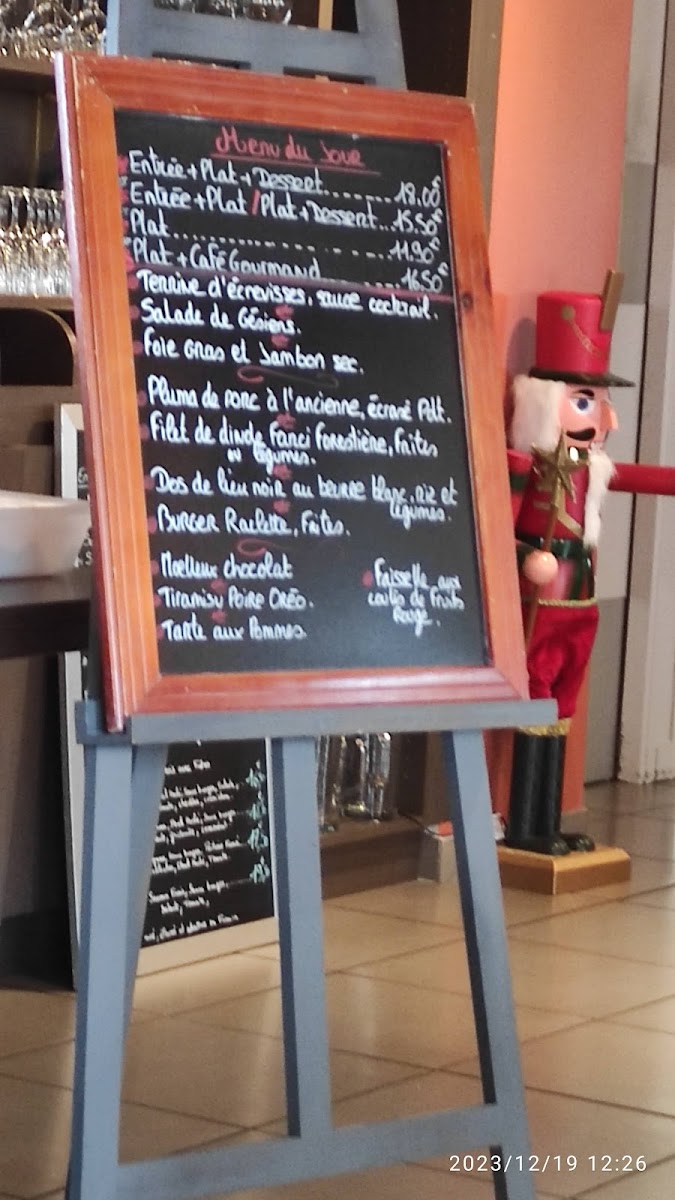 Menu du Jour
Entrée + Plat + Dessert........18.00€
Entrée + Plat / Plat + Dessert...15.50€
Plat..............11.90€
Plat + Café Gourmand........16.50€
Terrine d'écrevisses, sauce cocktail.
Salade de Gésiers.
Foie Gras et Jambon sec.
Pluma de porc à l'ancienne, écrasé Pdt.
Filet de dinde Farci Forestière, Frites
ou légumes.
Dos de lieu noir au beurre blanc, riz et
légumes.
Burger Raclette, Frites.
Moelleux chocolat
Tiramisu Poire Oréo.
Tarte aux Pommes.
Faisselle aux
coulis de Fruits
Rouge.
2023/12/19 12:26